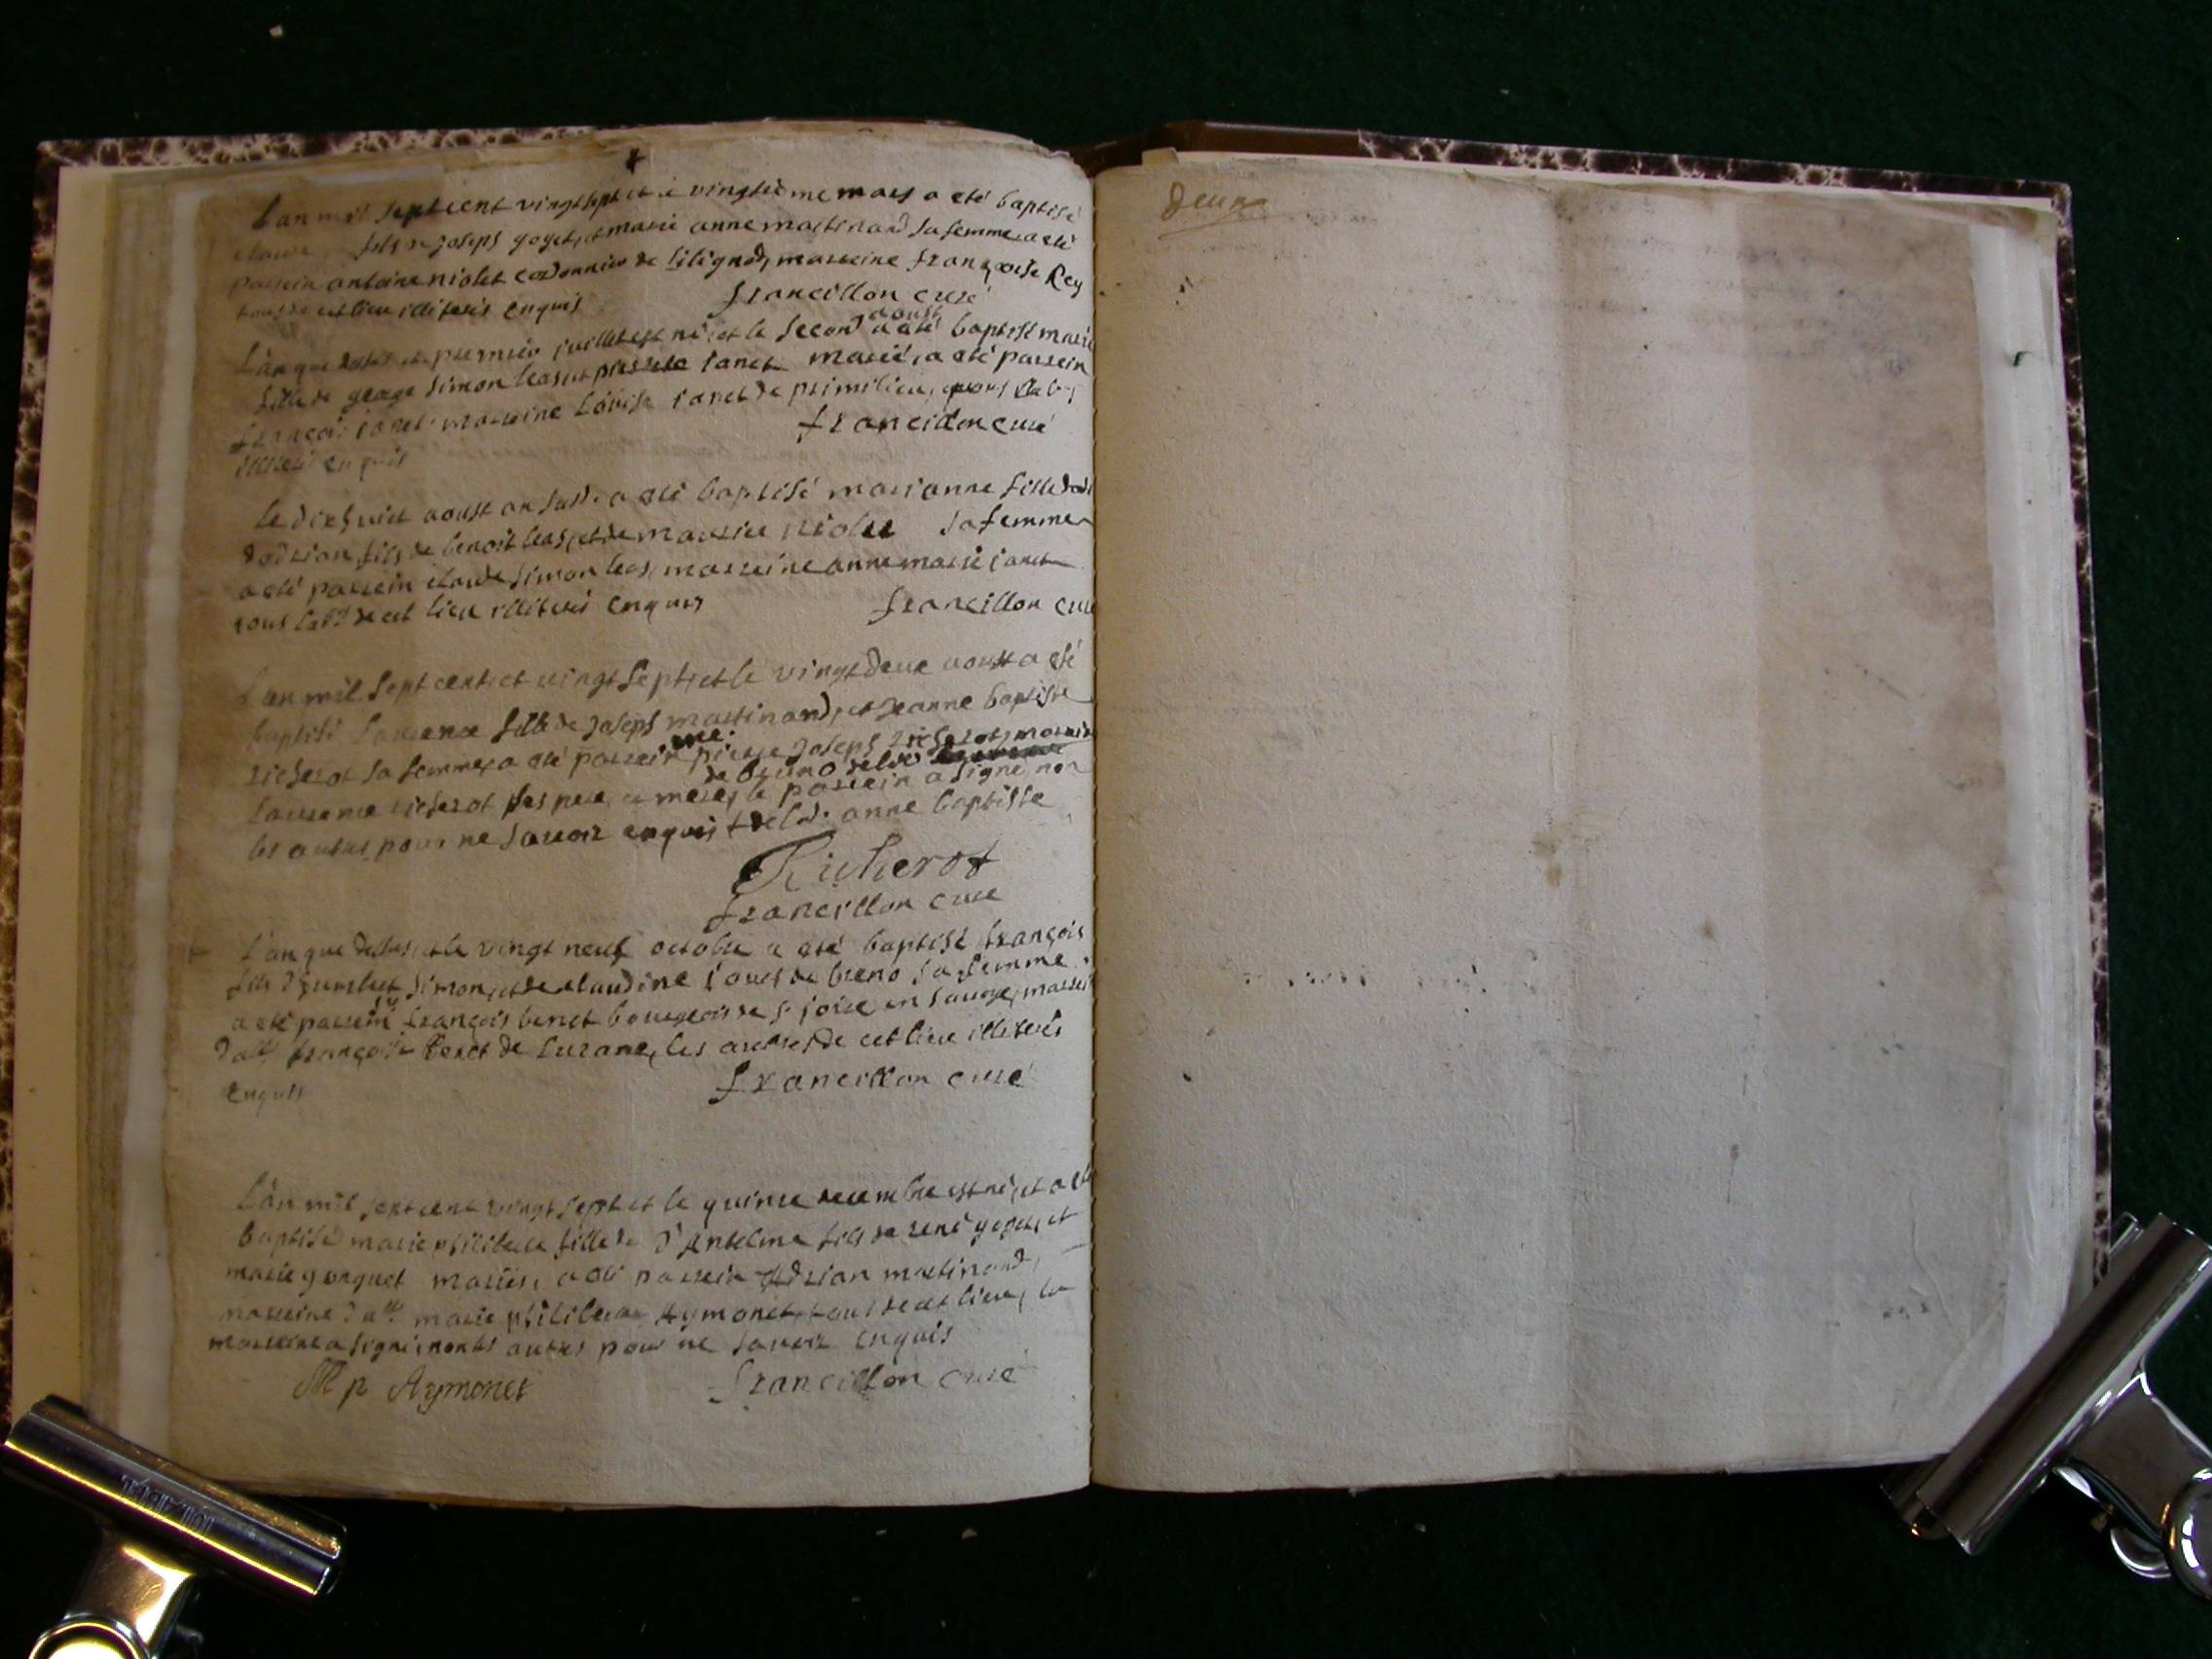 L'an mil sept cent vingt sept et le vingtième mars a eté baptisé
claude fils de joseph goget, et marie anne martinand sa femme, a eté
parrein antoine niolet cordonnier de silignod, marreine françoise Rey
tous de cet lieu illiterés enquis francillon curé
L'an que dessus et premier juillet est né, et le second aoust a eté baptisé marie
fille de george simon leas et pierrete janet mariés, a eté parrein
françois janet marreine Lovise janet de primilieu, tous lab:
illiterés enquis francillon curé
Le dixhuict aoust an susd. a eté baptisé marianne fille
d'adrian fils de benoit leas, et de maurise niolet sa femme
a eté parrein claude simon leas, marreine anne marie janet
tous lab:rs de cet lieu illiterés enquis francillon curé
L'an mil sept cent, et vingt sept, et le vingt deux aoust a eté
baptisé laurence fille de joseph martinand, et jeanne baptiste
richerot sa femme, a eté parrein me. pierre joseph richerot, marreine
de breno
laurence richerot ses pere, et mere, le parrein a signé, non
les autres pour ne savoir enquis + de lad. anne baptiste
Richerot
francillon curé
L'an que dessus, et le vingt neuf octobre a eté baptisé françois
fils d'humbert simon, et de claudine de breno sa femme
a eté parrein sr françois benet bourgeois de st joire en savoye, marreine
dalle françoise de luzane, les de cet lieu illiterés
enquis francillon curé
L'an mil sept cent vingt sept et le quinze decembre est né, et a eté
baptisé marie philiberte fille de d'Antelme fils de rené goget, et
marie gonguet mariés, a eté parrein Adrian martinand,
marreine dalle marie philiberte Aymonet, tous de cet lieu, la
marreine a signé, non les autres pour ne savoir enquis
M p Aymonet francillon curé
deux